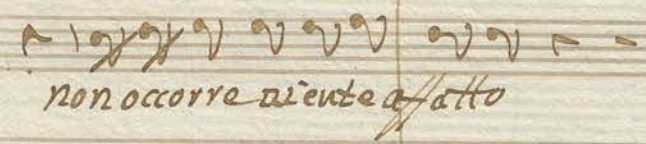 non occorre niente affatto